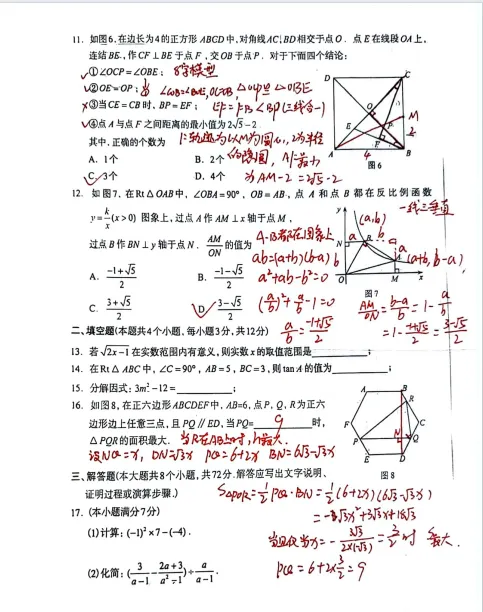 11. 如图6,在边长为4的正方形 ABCD 中,对角线AC,BD相交于点O. 点E在线段OA上,
连结BE,作CF⊥BE于点F,交OB于点P. 对于下面四个结论:
√①∠OCP=∠OBE; 8字模型
√②OE=OP; △OCP≌△OBE
×③当CE=CB时,BP=EF; EF=FB<BP(三线合一)
√④点A与点F之间距离的最小值为2√5-2
其中,正确的个数为
A. 1个 B. 2个
C. 3个 D. 4个 为AM-2=2√5-2
D C
O M
E F P 2
A 4 B
图6
12. 如图7,在Rt△OAB中,∠OBA=90°,OB=AB,点A和点B都在反比例函数
y=k/x(x>0) 图象上,过点A作AM⊥x轴于点M,
过点B作BN⊥y轴于点N. AM/ON 的值为
A. (-1+√5)/2 B. (-1-√5)/2
C. (3+√5)/2 D. (3-√5)/2
A.B都在图象上
ab=(a+b)(b-a)
a²+ab-b²=0
(a/b)²+a/b-1=0
a/b=(-1+√5)/2
一线三垂直
(a,b)
(a+b,b-a)
图7
AM/ON=(b-a)/b=1-a/b
=1-(-1+√5)/2=(3-√5)/2
二、填空题(本题共4个小题,每小题3分,共12分)
13. 若√(2x-1)在实数范围内有意义,则实数x的取值范围是________;
14. 在Rt△ABC中,∠C=90°,AB=5,BC=3,则tanA的值为________;
15. 分解因式:3m²-12=________;
16. 如图8,在正六边形ABCDEF中,AB=6,点P,Q,R为正六
边形边上任意三点,且PQ∥ED,当PQ=__9__时,
△PQR的面积最大. 当R在AB上时,h最大.
设NQ=x, DN=√3x PQ=6+2x BN=6√3-√3x
A B
R
F C
P N Q
E D
图8
三、解答题(本大题共8个小题,共72分.解答应写出文字说明、
证明过程或演算步骤.)
S△PQR=1/2PQ·BN=1/2(6+2x)(6√3-√3x)
=-√3x²+3√3x+18√3
当且仅当x=-3√3/(2×(-√3))=3/2时 最大.
PQ=6+2×3/2=9
17. (本小题满分7分)
(1)计算:(-1)²×7-(-4).
(2)化简:(3/(a-1)-(2a+3)/(a²-1))÷a/(a-1).